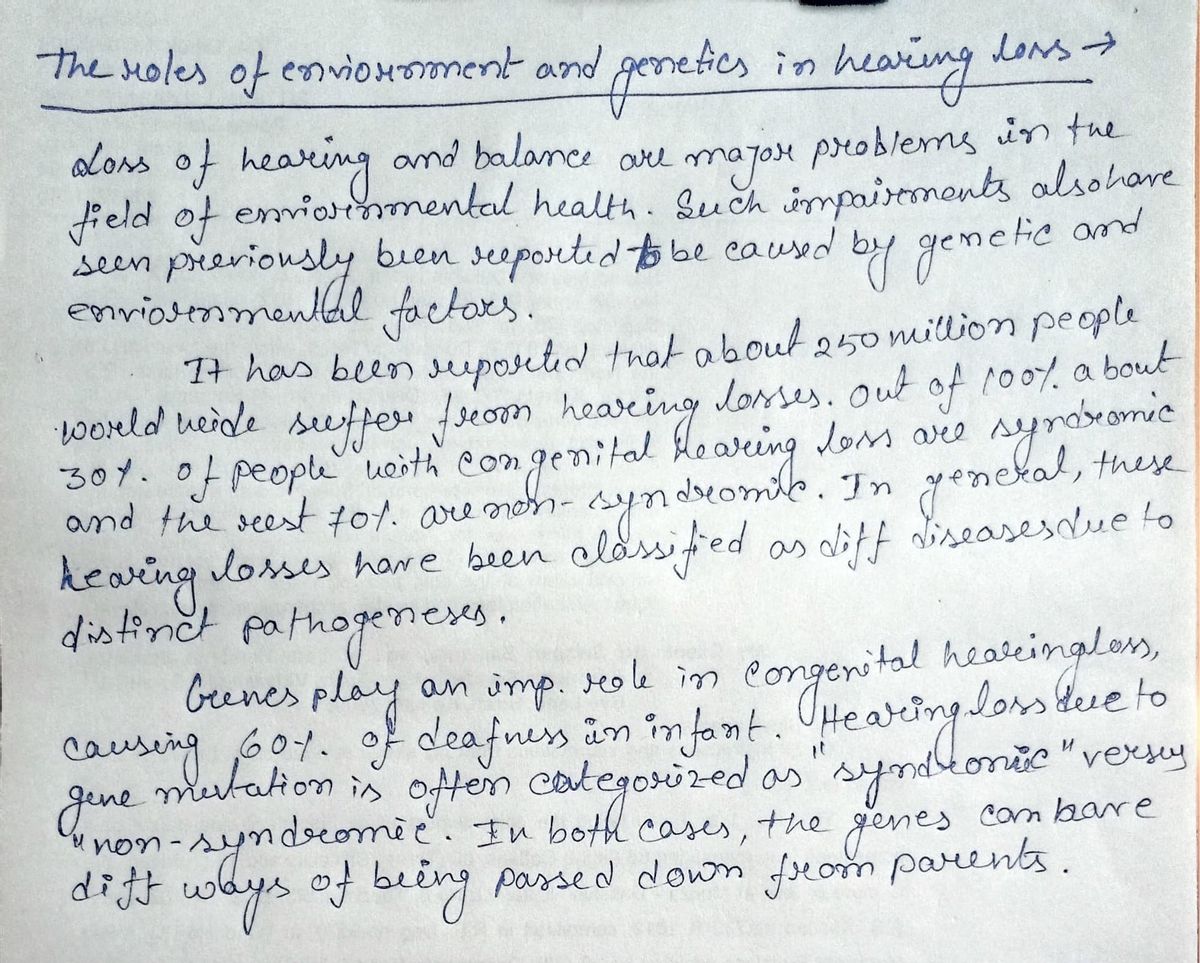 The roles of enviornment and genetics in hearing loss →
Loss of hearing and balance are major problems in the
field of enviornmental health. Such impairments also have
seen previously been reported to be caused by genetic and
enviornmental factors.
It has been reported that about 250 million people
world wide suffer from hearing losses. Out of 100% about
30% of people with congenital hearing loss are syndromic
and the rest 70% are non-syndromic. In general, these
hearing losses have been classified as diff diseases due to
distinct pathogeneses.
Genes play an imp. role in congenital hearing loss,
causing 60% of deafness in infant. Hearing loss due to
gene mutation is often categorized as "syndromic" versus
"non-syndromic. In both cases, the genes can have
diff ways of being passed down from parents.